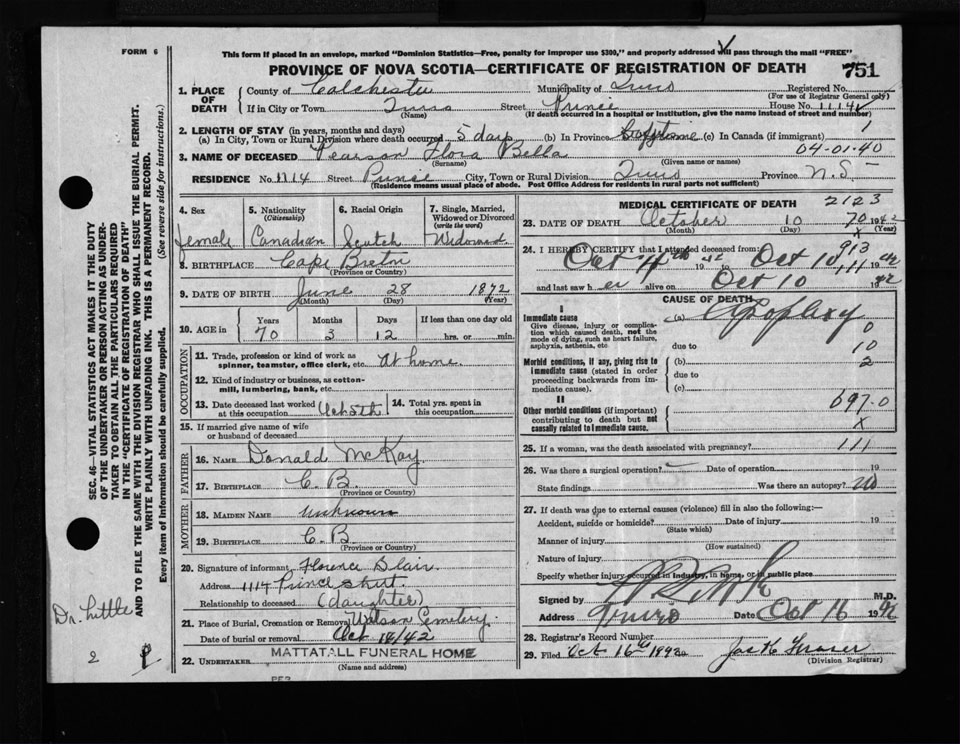 FORM 6
This form if placed in an envelope, marked "Dominion Statistics—Free, penalty for improper use $300," and properly addressed will pass through the mail "FREE"
PROVINCE OF NOVA SCOTIA—CERTIFICATE OF REGISTRATION OF DEATH 751
1. PLACE OF DEATH County of Colchester Municipality of Truro Registered No.
(For use of Registrar General only)
If in City or Town Truro Street Prince House No. 1114
(Name) (If death occurred in a hospital or institution, give the name instead of street and number)
2. LENGTH OF STAY (in years, months and days) 1
(a) In City, Town or Rural Division where death occurred 5 days (b) In Province (c) In Canada (if immigrant)
04-01-40
3. NAME OF DECEASED Pearson Flora Bella
(Surname) (Given name or names)
RESIDENCE No. 1114 Street Prince City, Town or Rural Division Truro Province N.S.
(Residence means usual place of abode. Post Office Address for residents in rural parts not sufficient)
4. Sex female
5. Nationality (Citizenship) Canadian
6. Racial Origin Scutch
7. Single, Married, Widowed or Divorced (write the word) Widowed
8. BIRTHPLACE Cape Breton
(Province or Country)
9. DATE OF BIRTH June 28 1872
(Month) (Day) (Year)
10. AGE in Years 70 Months 3 Days 12 If less than one day old hrs. or min.
OCCUPATION
11. Trade, profession or kind of work as spinner, teamster, office clerk, etc. At home
12. Kind of industry or business, as cotton-mill, lumbering, bank, etc.
13. Date deceased last worked at this occupation Oct 5th
14. Total yrs. spent in this occupation
15. If married give name of wife or husband of deceased
FATHER
16. NAME Donald McKay
17. BIRTHPLACE C.B.
(Province or Country)
MOTHER
18. MAIDEN NAME unknown
19. BIRTHPLACE C.B.
(Province or Country)
20. Signature of informant Florence Blair
Address 1114 Prince Street
Relationship to deceased (daughter)
21. Place of Burial, Cremation or Removal Watson Cemetery
Date of burial or removal Oct /42
22. UNDERTAKER MATTATALL FUNERAL HOME
(Name and address)
MEDICAL CERTIFICATE OF DEATH 2123
23. DATE OF DEATH October 10 1942
(Month) (Day) (Year)
70
x
24. I HEREBY CERTIFY that I attended deceased from: 913
Oct 4th 1942 to Oct 10 1942
111
and last saw her alive on Oct 10 1942
CAUSE OF DEATH
I
Immediate cause (a) Apoplexy
Give disease, injury or complication which caused death, not the mode of dying, such as heart failure, asphyxia, asthenia, etc.
due to
0
10
2
Morbid conditions, if any, giving rise to immediate cause (stated in order proceeding backwards from immediate cause). (b)
due to
(c)
II
Other morbid conditions (if important) contributing to death but not causally related to immediate cause.
097.0
x
25. If a woman, was the death associated with pregnancy? 111
26. Was there a surgical operation? Date of operation 19
State findings Was there an autopsy? no
27. If death was due to external causes (violence) fill in also the following:—
Accident, suicide or homicide? Date of injury 19
(State which)
Manner of injury
(How sustained)
Nature of injury
Specify whether injury occurred in industry, in home, or in public place
Signed by M.D.
Address Truro Date Oct 16 1942
28. Registrar's Record Number
29. Filed Oct 16th 1942 Jas K Fraser
(Division Registrar)
SEC. 46—VITAL STATISTICS ACT MAKES IT THE DUTY
OF THE UNDERTAKER OR PERSON ACTING AS UNDER-
TAKER TO OBTAIN ALL THE PARTICULARS REQUIRED
IN THE "CERTIFICATE OF REGISTRATION OF DEATH"
AND TO FILE THE SAME WITH THE DIVISION REGISTRAR WHO SHALL ISSUE THE BURIAL PERMIT.
WRITE PLAINLY WITH UNFADING INK. THIS IS A PERMANENT RECORD.
Every item of Information should be carefully supplied. (See reverse side for instructions.)
Dr. Little
2